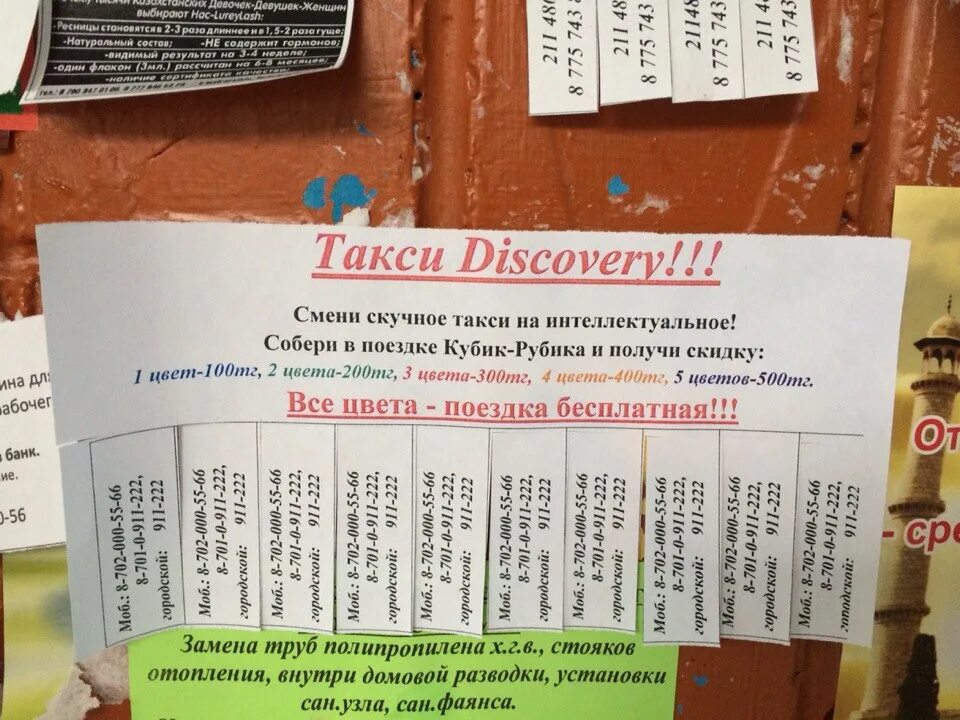 Казахстанских Девочек-Девушек-Женщин
выбирают Hac-LureyLash:
-Ресницы становятся в 2-3 раза длиннее и в 1, 5-2 раза гуще;
-Натуральный состав; -НЕ содержит гормонов;
-видимый результат на 3-4 неделе;
-один флакон (3мл.) рассчитан на 6-8 месяцев;
-наличие сертификата качества;
211 48
8 775 743
211 48
8 775 743
211 48
8 775 743
211 48
8 775 743
Такси Discovery!!!
Смени скучное такси на интеллектуальное!
Собери в поездке Кубик-Рубика и получи скидку:
1 цвет-100тг, 2 цвета-200тг, 3 цвета-300тг, 4 цвета-400тг, 5 цветов-500тг.
Все цвета - поездка бесплатная!!!
Моб.: 8-702-000-55-66
8-701-0-911-222,
городской: 911-222
Моб.: 8-702-000-55-66
8-701-0-911-222,
городской: 911-222
Моб.: 8-702-000-55-66
8-701-0-911-222,
городской: 911-222
Моб.: 8-702-000-55-66
8-701-0-911-222,
городской: 911-222
Моб.: 8-702-000-55-66
8-701-0-911-222,
городской: 911-222
Моб.: 8-702-000-55-66
8-701-0-911-222,
городской: 911-222
Моб.: 8-702-000-55-66
8-701-0-911-222,
городской: 911-222
Моб.: 8-702-000-55-66
8-701-0-911-222,
городской: 911-222
Моб.: 8-702-000-55-66
8-701-0-911-222,
городской: 911-222
Моб.: 8-702-000-55-66
8-701-0-911-222,
городской: 911-222
ина для
рабочег
в банк.
ие.
0-56
От
- сре
Замена труб полипропилена х.г.в., стояков
отопления, внутри домовой разводки, установки
сан.узла, сан.фаянса.